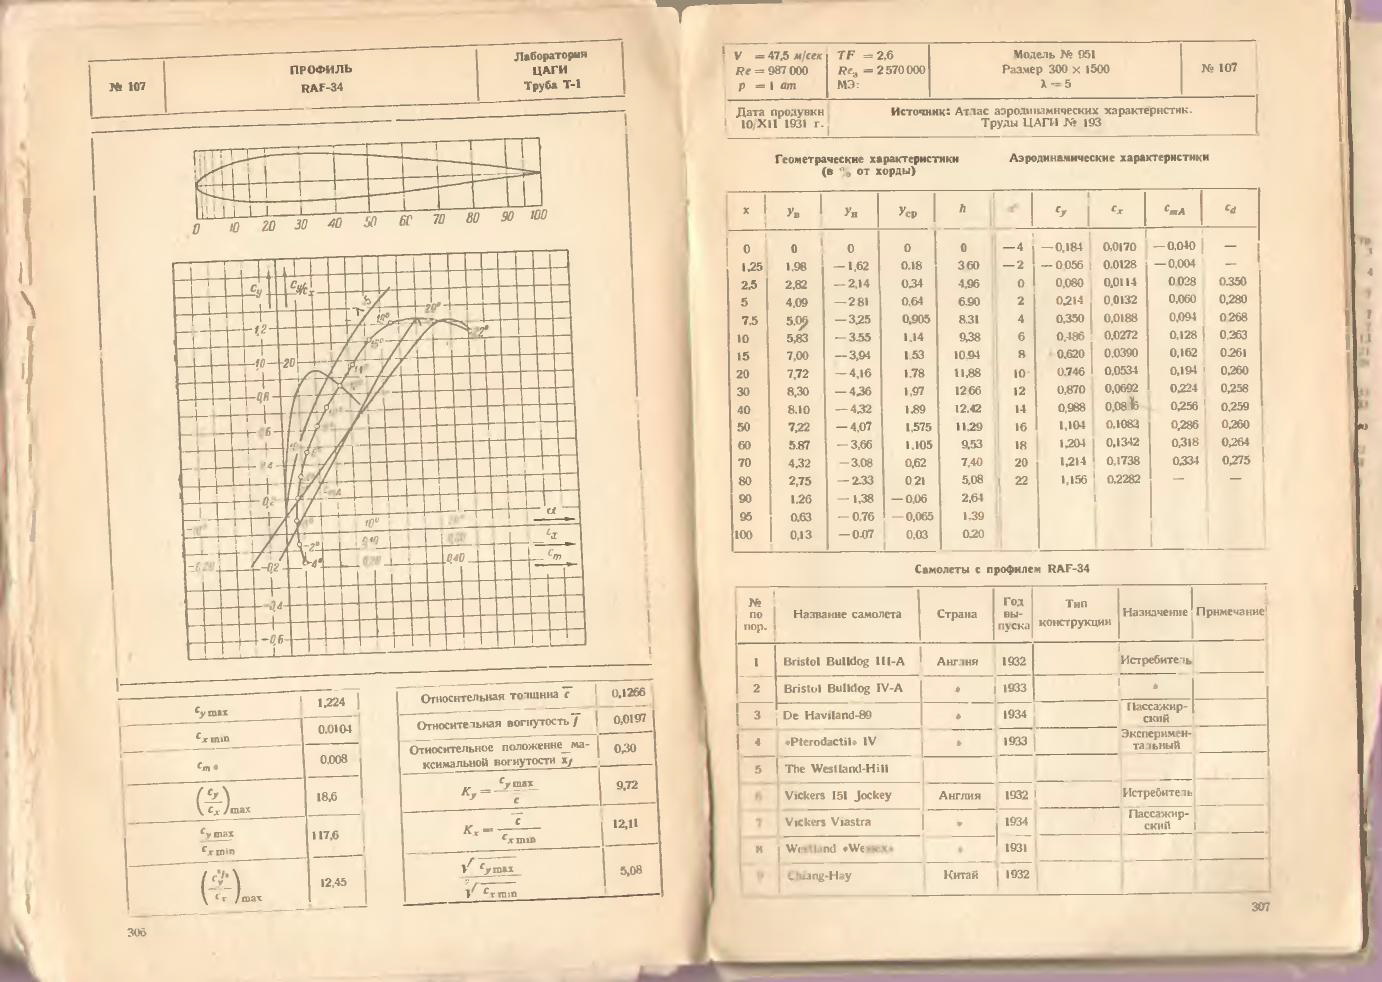 № 107
ПРОФИЛЬ
RAF-34
Лаборатория
ЦАГИ
Труба Т-1
0 10 20 30 40 50 60 70 80 90 100
c_y c_y/c_x λ=5
1,2
1,0 20
0,8
0,6
0,4
0,2
-0,2
-0,4
-0,6
18° 20° 22°
16°
-2°
-4°
c_mA
10° α
0,10 c_x
0,40 c_m
c_y max 1,224
c_x min 0.0104
c_m o 0.008
(c_y/c_x)max 18,6
c_y max/c_x min 117,6
(c_y^3/2/c_x)max 12,45
Относительная толщина c̅ 0,1266
Относительная вогнутость f̅ 0,0197
Относительное положение ма-
ксимальной вогнутости x̅f 0,30
K_y = c_y max/c̅ 9,72
K_x = c̅/c_x min 12,11
√c_y max/∛c_x min 5,08
306
V = 47,5 м/сек TF = 2,6 Модель № 951 № 107
Re = 987 000 Reэ = 2 570 000 Размер 300 × 1500
p = 1 ат МЭ: λ = 5
Дата продувки Источник: Атлас аэродинамических характеристик.
10/XII 1931 г. Труды ЦАГИ № 193
Геометрические характеристики Аэродинамические характеристики
(в % от хорды)
x y_в y_н y_ср h α° c_y c_x c_mA c_d
0 0 0 0 0 —4 —0,184 0.0170 —0,040 —
1,25 1,98 —1,62 0.18 3,60 —2 —0,056 0.0128 —0,004 —
2,5 2,82 —2,14 0,34 4,96 0 0,080 0,0114 0,028 0.350
5 4,09 —2,81 0,64 6,90 2 0,214 0,0132 0,060 0,280
7,5 5,06 —3,25 0,905 8,31 4 0,350 0,0188 0,094 0,268
10 5,83 —3,55 1,14 9,38 6 0,486 0,0272 0,128 0,263
15 7,00 —3,94 1,53 10,94 8 0,620 0.0390 0,162 0,261
20 7,72 —4,16 1.78 11,88 10 0.746 0,0534 0,194 0,260
30 8,30 —4,36 1,97 12,66 12 0,870 0,0692 0,224 0,258
40 8.10 —4,32 1,89 12,42 14 0,988 0,256 0,259
50 7,22 —4,07 1,575 11,29 16 1,104 0,1083 0,286 0,260
60 5.87 —3,66 1,105 9,53 18 1,204 0,1342 0,318 0,264
70 4,32 —3,08 0,62 7,40 20 1,214 0,1738 0,334 0,275
80 2,75 —2,33 0,21 5,08 22 1,156 0.2282 — —
90 1,26 —1,38 —0,06 2,64
95 0,63 —0,76 —0,065 1,39
100 0,13 —0,07 0,03 0,20
Самолеты с профилем RAF-34
№ по пор. Название самолета Страна Год вы- пуска Тип конструкции Назначение Примечание
1 Bristol Bulldog III-A Англия 1932 Истребитель
2 Bristol Bulldog IV-A » 1933 »
3 De Haviland-89 » 1934 Пассажир-
ский
4 «Pterodactil» IV » 1933 Эксперимен-
тальный
5 The Westland-Hill
6 Vickers 151 Jockey Англия 1932 Истребитель
7 Vickers Viastra » 1934 Пассажир-
ский
8 Westland «Wessex» » 1931
9 Chiang-Hay Китай 1932
307